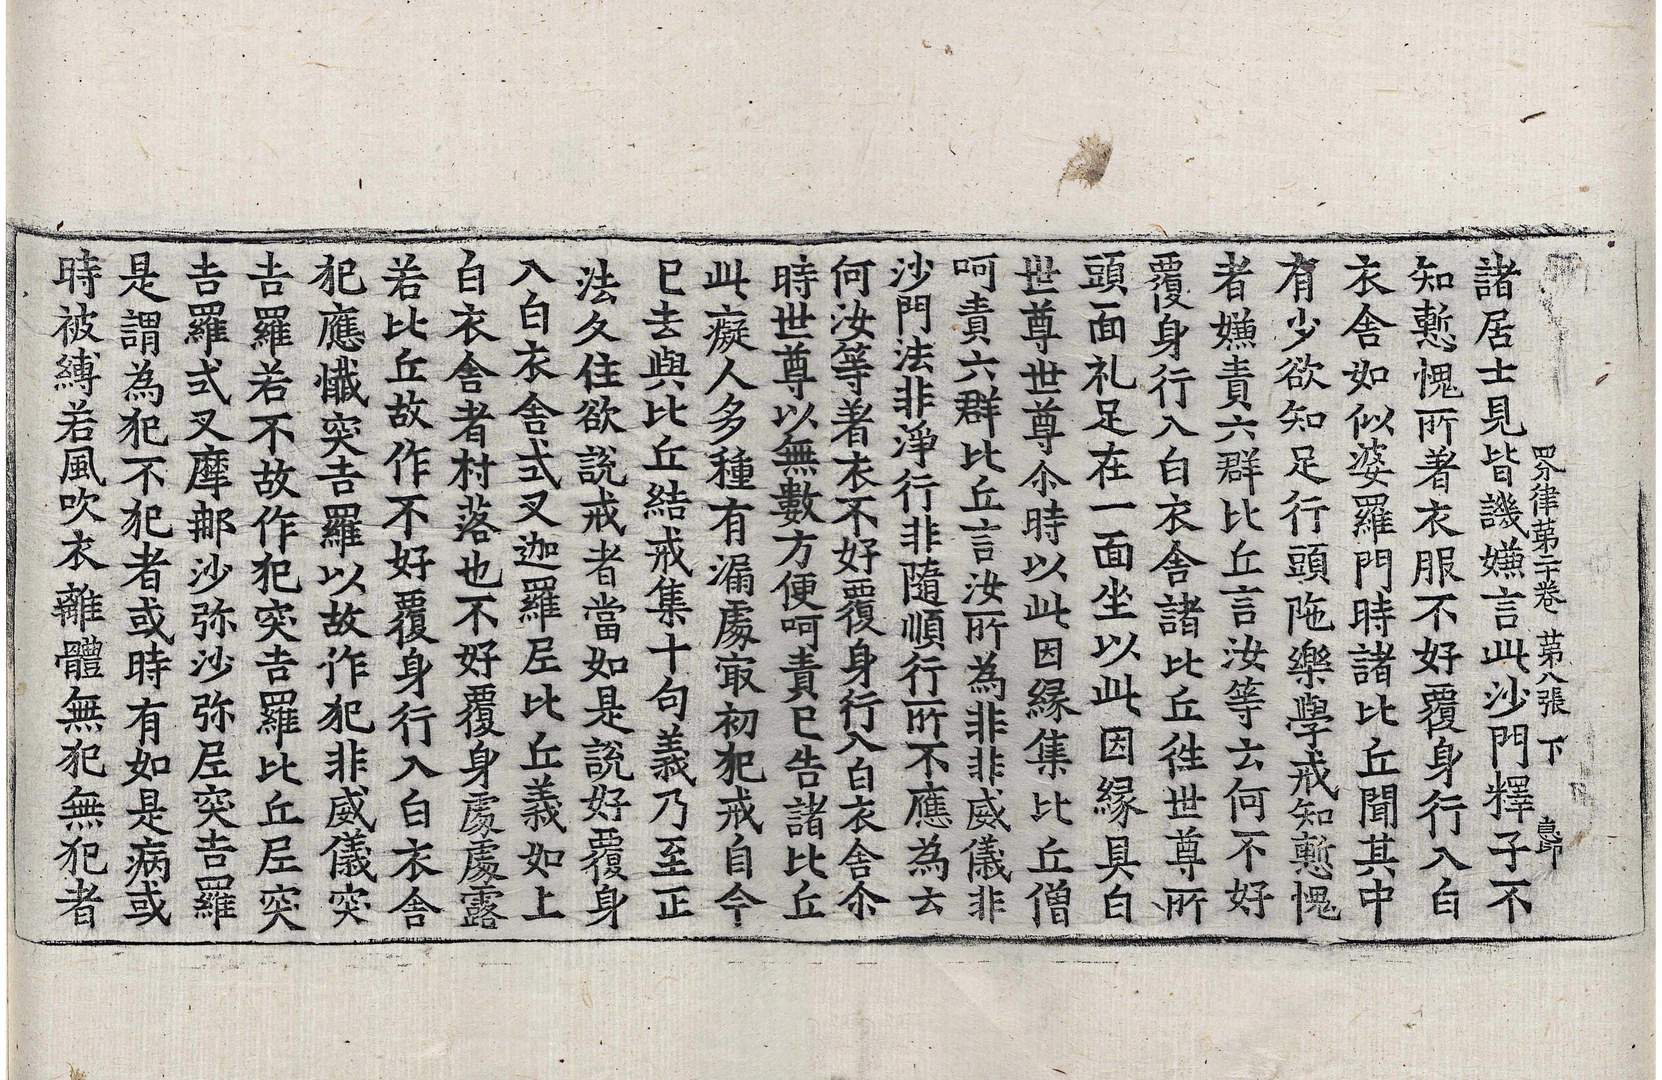 四分律第二十卷 苐八張 下
諸居士見皆譏嫌言此沙門釋子不
知慙愧所著衣服不好覆身行入白
衣舍如似婆羅門時諸比丘聞其中
有少欲知足行頭陁樂學戒知慙愧
者嫌責六群比丘言汝等云何不好
覆身行入白衣舍諸比丘徃世尊所
頭面礼足在一面坐以此因縁具白
世尊世尊尒時以此因縁集比丘僧
呵責六群比丘言汝所為非非威儀非
沙門法非淨行非隨順行所不應為云
何汝等著衣不好覆身行入白衣舍尒
時世尊以無數方便呵責已告諸比丘
此癡人多種有漏處㝡初犯戒自今
已去與比丘結戒集十句義乃至正
法久住欲說戒者當如是說好覆身
入白衣舍式叉迦羅尼比丘義如上
白衣舍者村落也不好覆身處處露
若比丘故作不好覆身行入白衣舍
犯應懺突吉羅以故作犯非威儀突
吉羅若不故作犯突吉羅比丘尼突
吉羅式叉摩那沙弥沙弥尼突吉羅
是謂為犯不犯者或時有如是病或
時被縛若風吹衣離體無犯無犯者